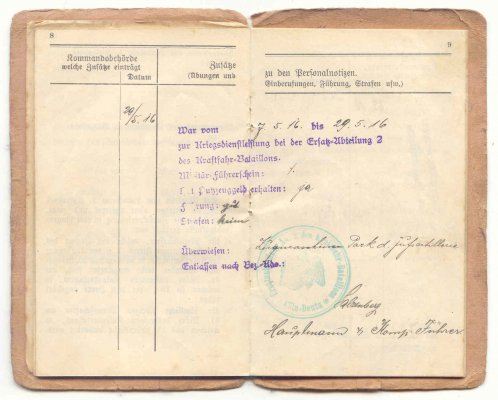 8
Kommandobehörde
welche Zusätze einträgt
Datum
Zusätze
(Übungen und
29/5.16
9
zu den Personalnotizen.
Einberufungen, Führung, Strafen usw.)
War vom 27.5.16. bis 29.5.16
zur Kriegsdienstleistung bei der Ersatz-Abteilung 2
des Kraftfahr-Bataillons.
Militär-Führerschein: 1.
Hat Putzzeuggeld erhalten: ja
Führung: gut
Strafen: keine
Überwiesen: Park d. Fußartillerie
Entlassen nach Bez.-Kdo.:
Hauptmann & Komp. Führer